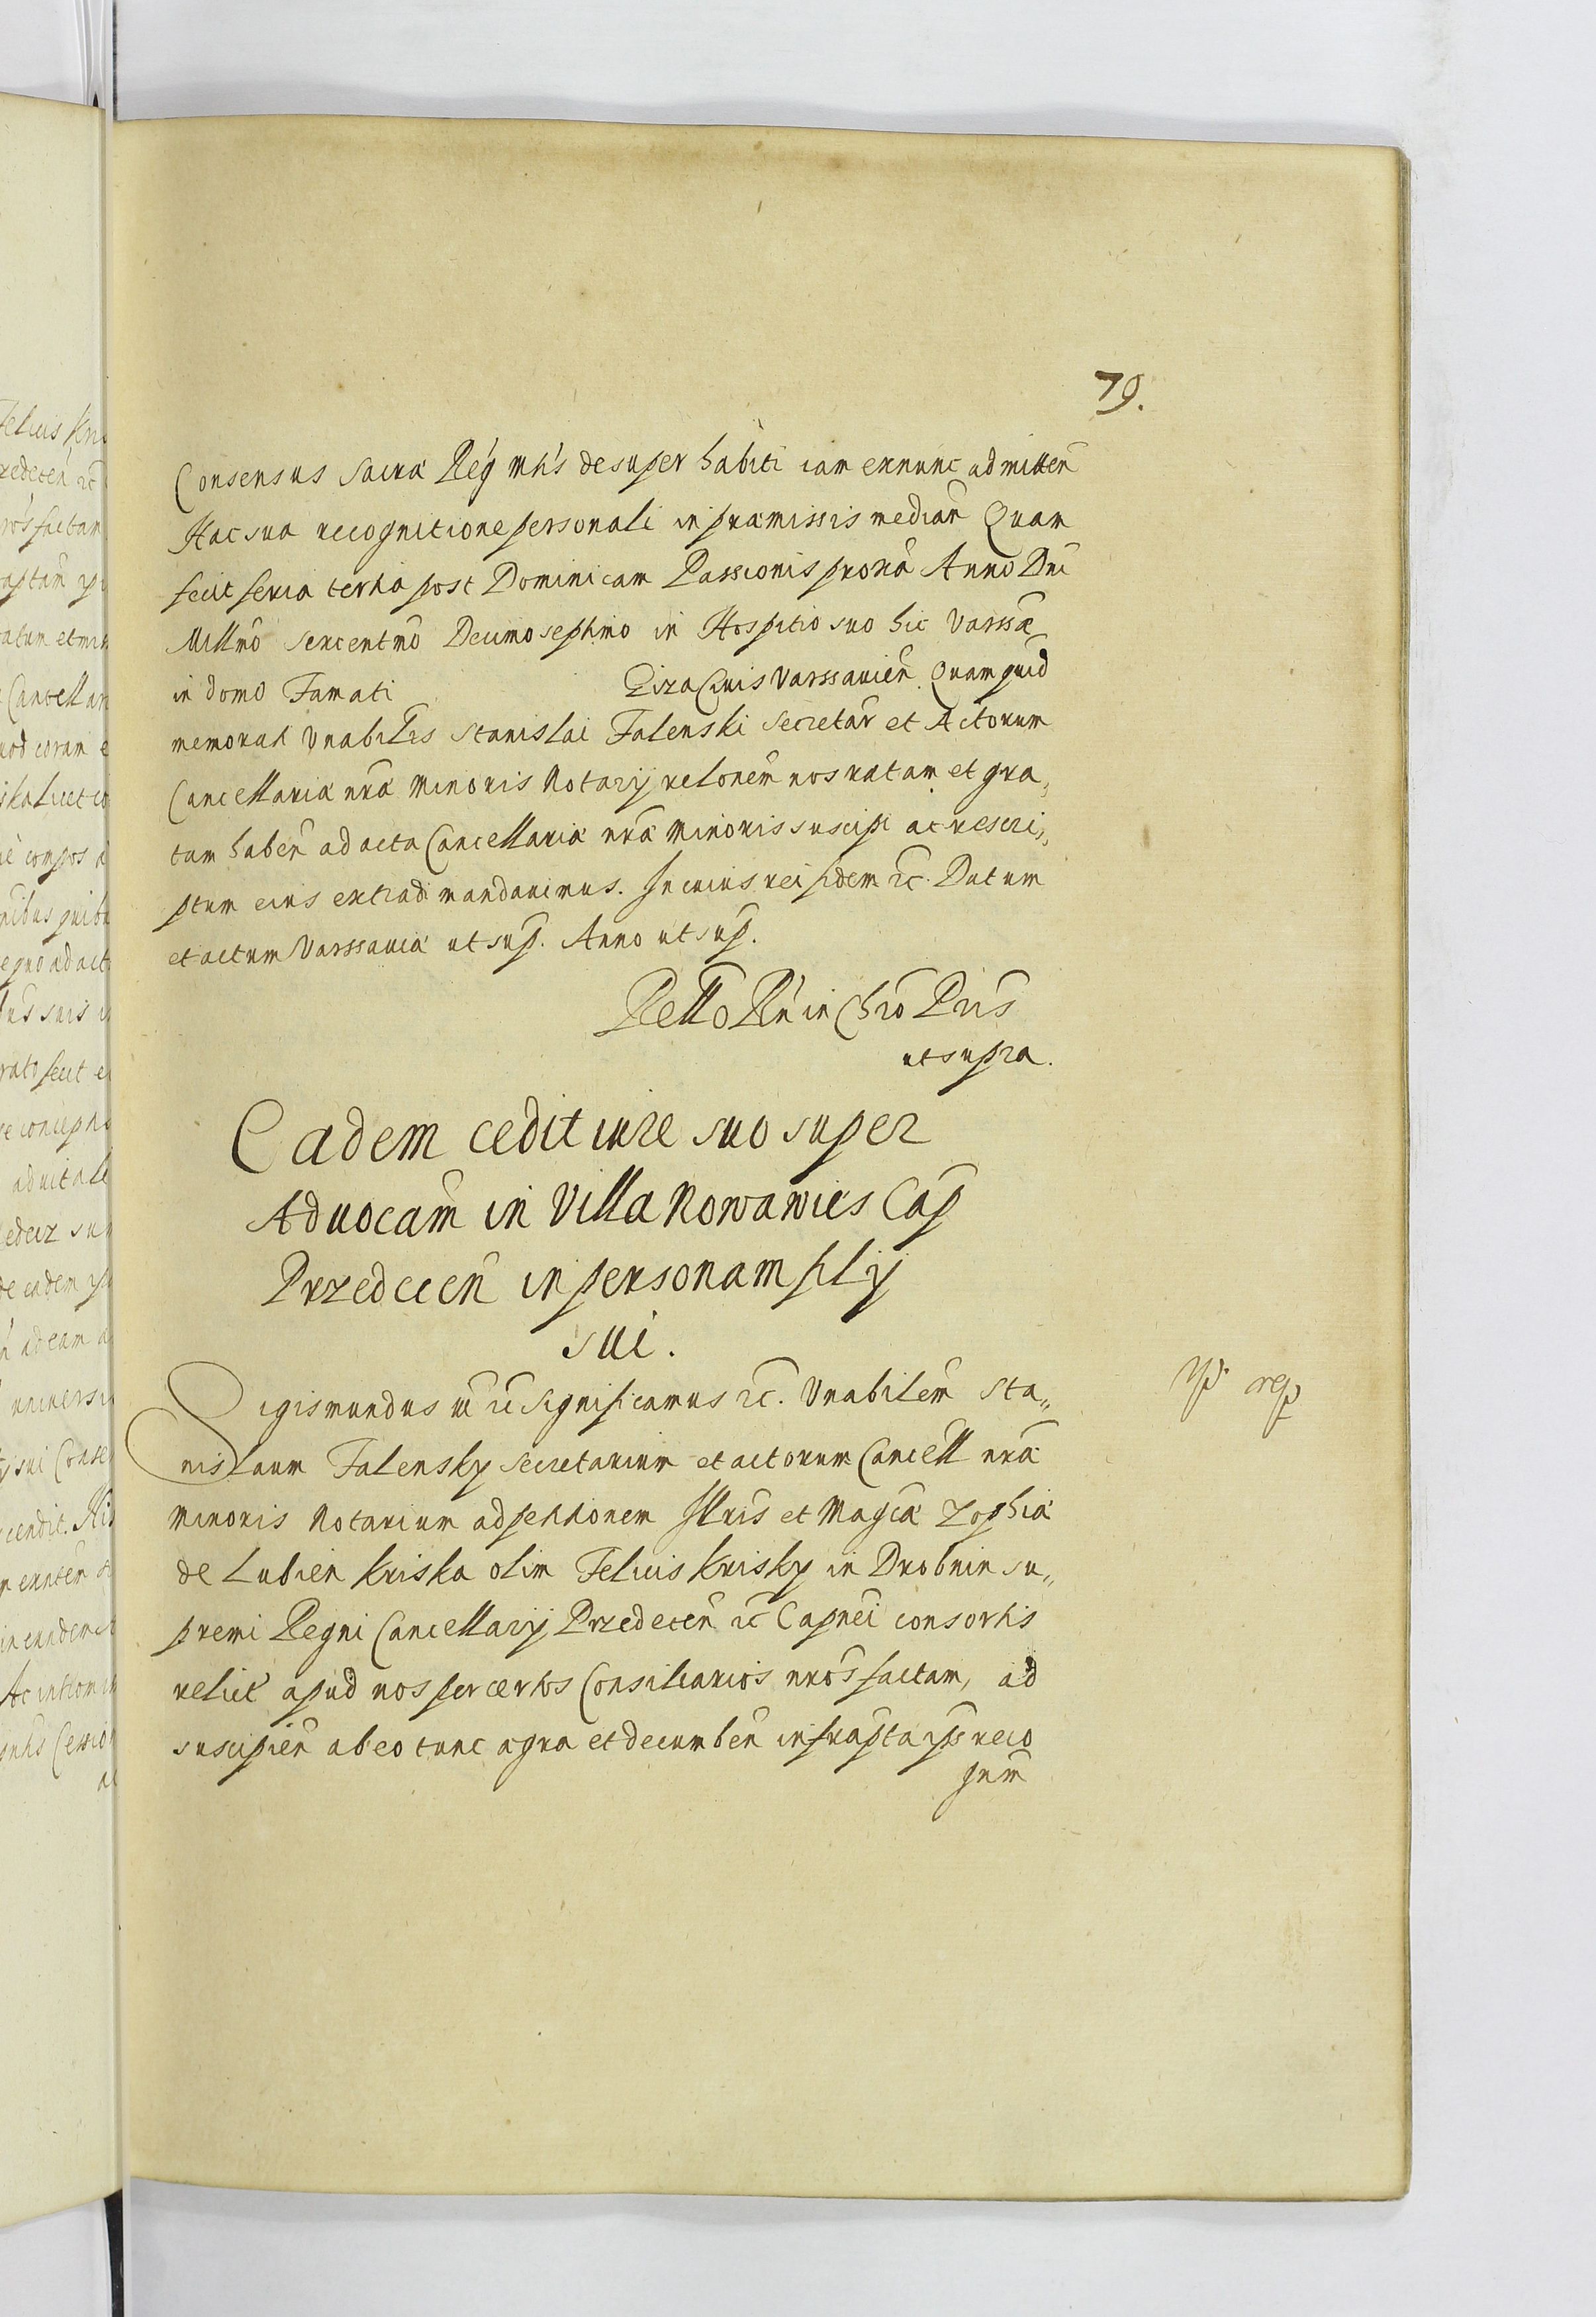 79.
Consensus Sacrae Reg Mtis desuper habiti iam exnunc admitten̄
Hac sua recognitione personali in praemissis median̄ Quam
fecit feria tertia post Dominicam Passionis proxa Anno Dni
Millmo Sexcentmo Decimoseptimo in Hospitio suo hic Varssae
in domo Famati Giza Civis Varssavien̄ Quam quid
memorati Vnabilis Stanislai Falenski Secretar et Actorum
Cancellariae nrae Minoris Notarij relonem nos ratam et gra„
tam haben̄ ad acta Cancellariae nrae Minoris suscipi ac rescri„
ptum eius extradi mandauimus. In cuius rei fidem etc. Datum
et actum Varssauiae ut sup. Anno ut sup.
Rello Rn in Chro Pris
ut supra.
Eadem cedit iure suo super
Aduocam̄ in Villa Nowawies Cap
Przedecen̄ in personam filij
sui.
Sigismundus III etc Significamus etc. Vnabilem̄ Sta„
nislaum Falensky Secretarium et actorum Cancell nrae
Minoris Notarium ad petitionem Illris et Magcae Zophiae
de Lubien Kriska olim Felicis Krisky in Drobnin su„
premi Regni Cancellarij Przedecen̄ etc Capnei consortis
relictae apud nos per certos Consiliarios nros factam, ad
suscipien̄ ab eo tunc aegra et decumben̄ infrapta ips reco
gnm̄